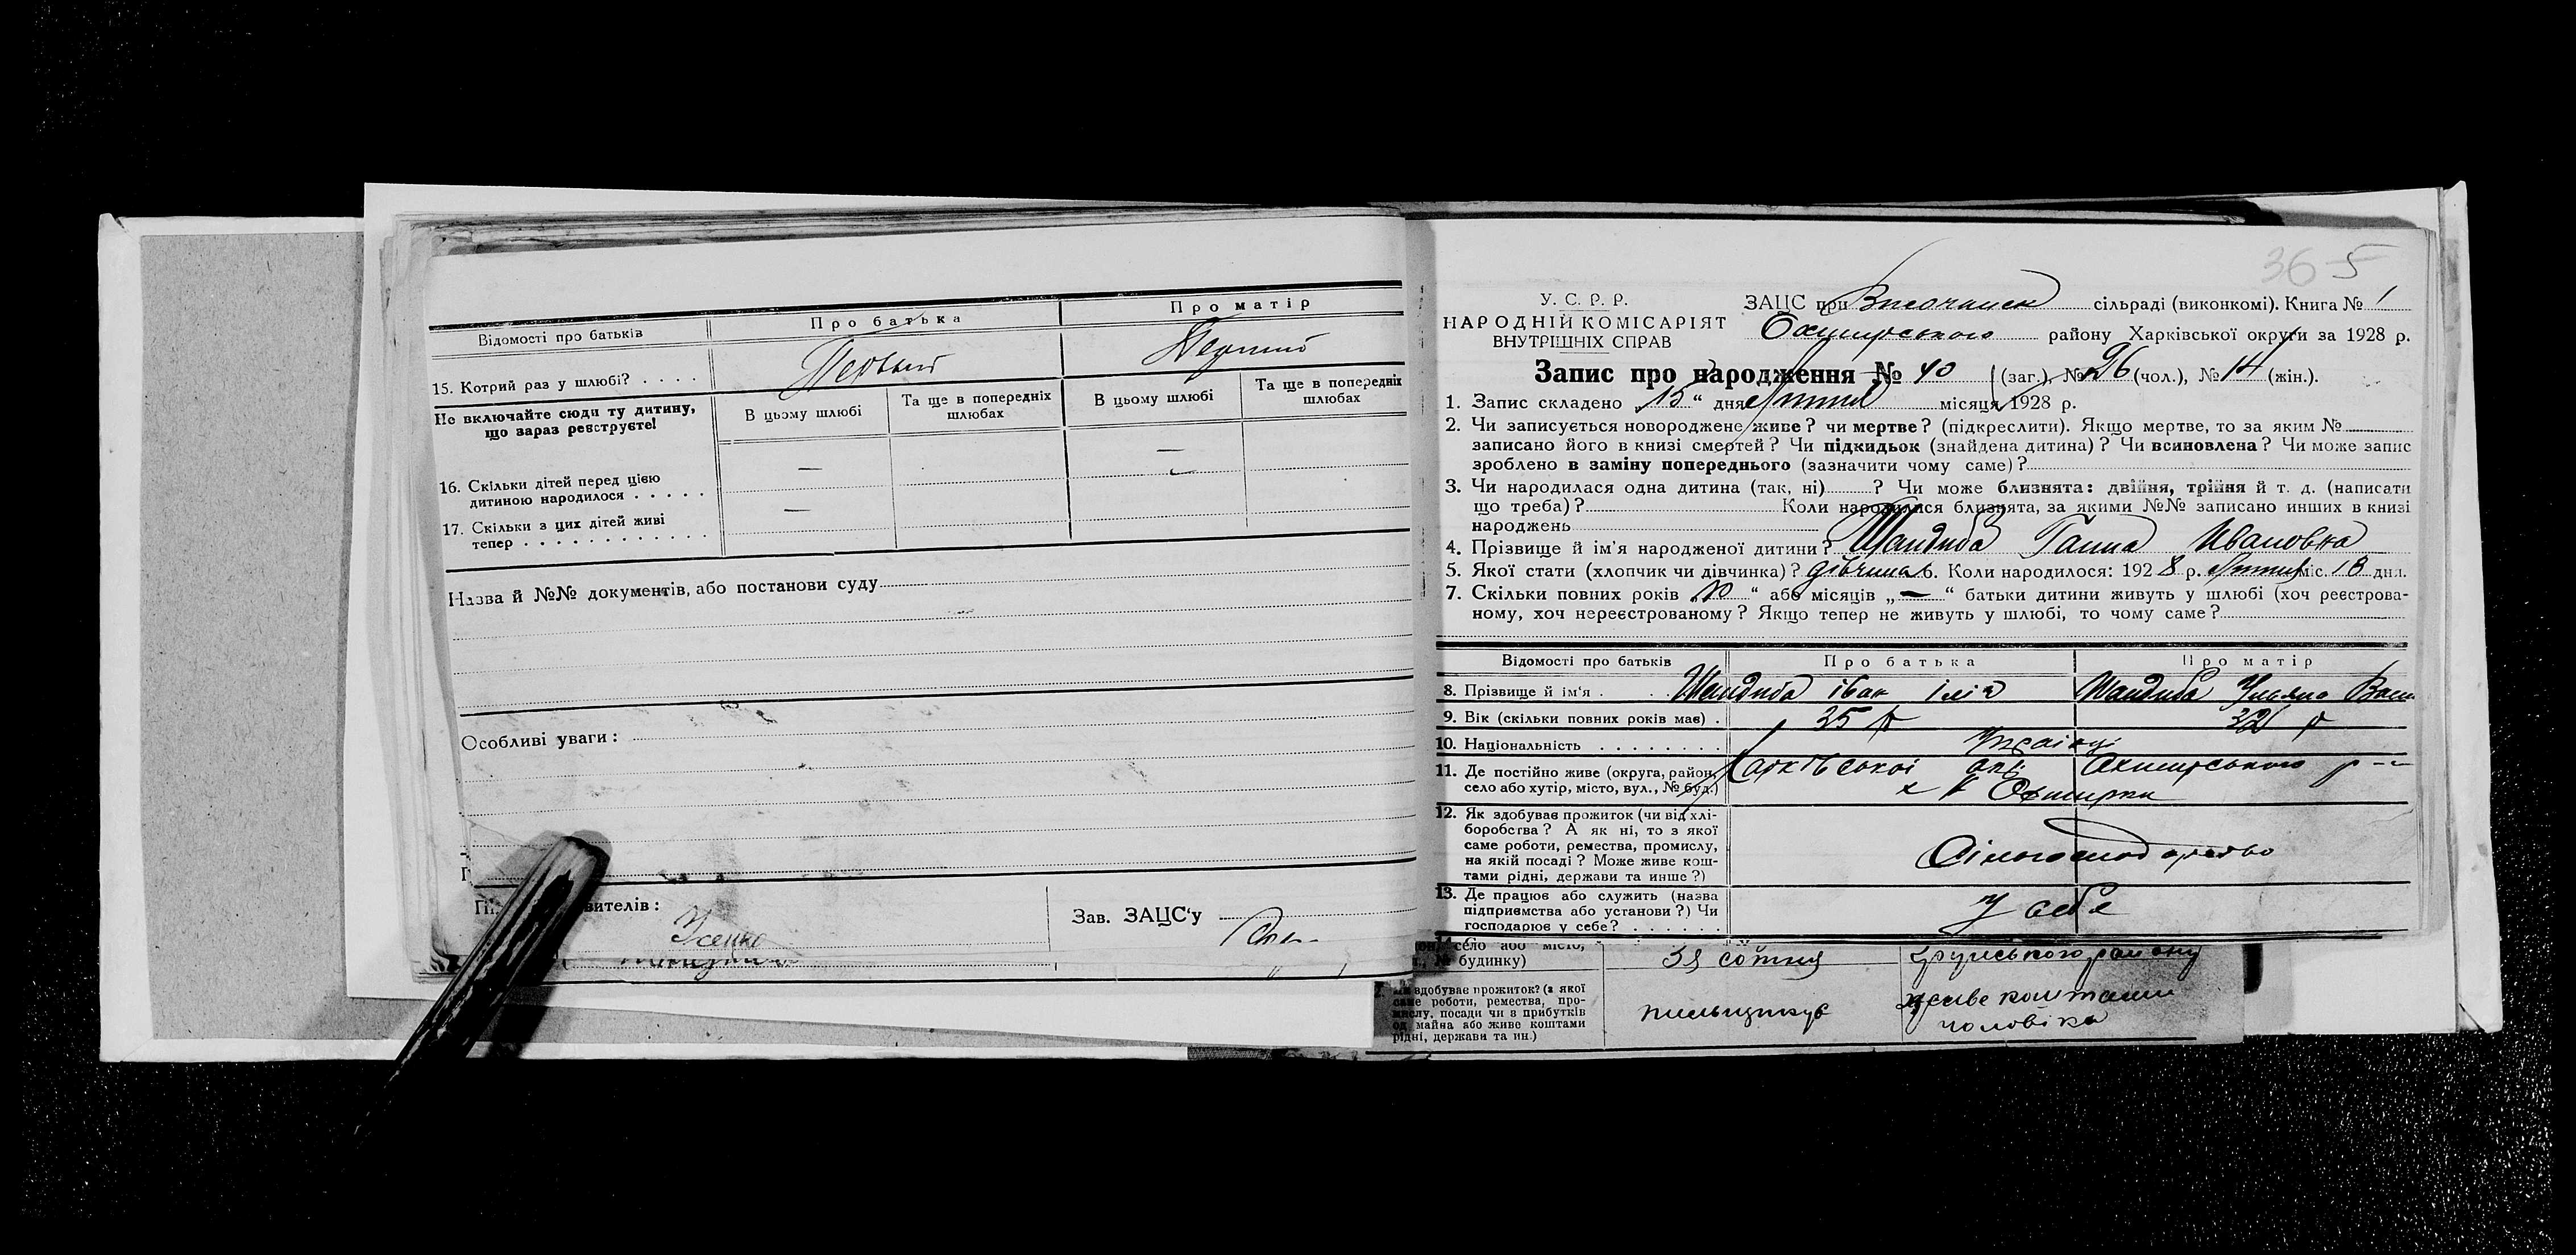 Про батька
Про матір
Відомості про батьків
15. Котрий раз у шлюбі? . . . .
Первый
Первый
Не включайте сюди ту дитину,
що зараз реєструєте!
В цьому шлюбі
Та ще в попередніх
шлюбах
В цьому шлюбі
Та ще в попередніх
шлюбах
16. Скільки дітей перед цією
дитиною народилося . . . . .
—
—
17. Скільки з цих дітей живі
тепер . . . . . . . . . . . .
—
Назва й №№ документів, або постанови суду
Особливі уваги:
вителів:
Усенко
Зав. ЗАЦС'у
365
У. С. Р. Р.
НАРОДНІЙ КОМІСАРІЯТ
ВНУТРІШНІХ СПРАВ
ЗАЦС при сільраді (виконкомі). Книга № 1
району Харківської округи за 1928 р.
Запис про народження № 40 (заг.), № 26 (чол.), № 14 (жін.).
1. Запис складено „15“ дня місяця 1928 р.
2. Чи записується новороджене живе? чи мертве? (підкреслити). Якщо мертве, то за яким №
записано його в книзі смертей? Чи підкидьок (знайдена дитина)? Чи всиновлена? Чи може запис
зроблено в заміну попереднього (зазначити чому саме)?
3. Чи народилася одна дитина (так, ні) ? Чи може близнята: двійня, трійня й т. д. (написати
що треба)? Коли народилися близнята, за якими №№ записано инших в книзі
народжень
4. Прізвище й ім'я народженої дитини? Шандиба Ганна Ивановна
5. Якої стати (хлопчик чи дівчинка)? дівчина 6. Коли народилося: 1928 р. міс. 13 дня.
7. Скільки повних років „10“ або місяців „—“ батьки дитини живуть у шлюбі (хоч реєстрова-
ному, хоч нереєстрованому? Якщо тепер не живуть у шлюбі, то чому саме?
Відомості про батьків
Про батька
Про матір
8. Прізвище й ім'я .
Шандиба Іван Ілія
Шандиба Уляна Васи
9. Вік (скільки повних років має) .
35 р
32 р
10. Національність . . . . . . . .
Українці
11. Де постійно живе (округа, район,
село або хутір, місто, вул., № буд.)
Харківської окр
12. Як здобуває прожиток (чи від хлі-
боробства? А як ні, то з якої
саме роботи, ремества, промислу,
на якій посаді? Може живе кош-
тами рідні, держави та инше?)
Сільгосподарство
13. Де працює або служить (назва
підприємства або установи?) Чи
господарює у себе? . . . . . .
у себе
село або місто,
будинку)
сотня
району
вдобуває прожиток? (з якої
саме роботи, ремества, про-
мислу, посади чи з прибутків
од майна або живе коштами
рідні, держави та ин.)
живе коштами
чоловіка